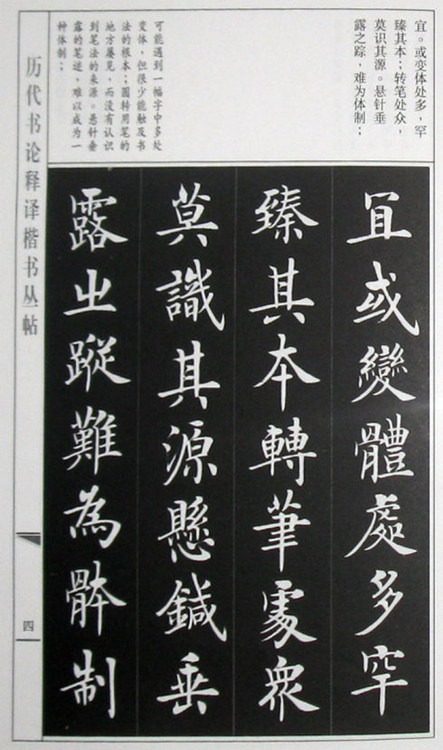 宜。或变体处多，罕
臻其本；转笔处众，
莫识其源。悬针垂
露之踪，难为体制；
可能遇到一幅字中多处
变体，但很少能触及书
法的根本；圆转用笔的
地方屡见，而没有认识
到笔法的来源。悬针垂
露的笔迹，难以成为一
种体制；
宜或變體處多罕
臻其本轉筆處衆
莫識其源懸鍼垂
露之蹤難為體制
历代书论释译楷书丛帖
四